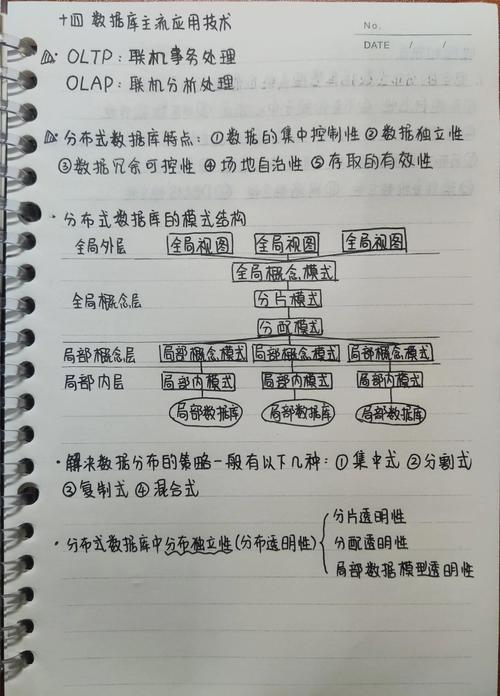 十四 数据库主流应用技术
No.
DATE / /
OLTP：联机事务处理
OLAP：联机分析处理
分布式数据库特点：①数据的集中控制性 ②数据独立性
③数据冗余可控性 ④场地自治性 ⑤存取的有效性
· 分布式数据库的模式结构
全局外层 全局视图 全局视图 全局视图
全局概念模式
全局概念层 分片模式
分配模式
局部概念层 局部概念模式 局部概念模式 局部概念模式
局部内层 局部内模式 局部内模式 局部内模式
局部数据库 局部数据库 局部数据库
· 解决数据分布的策略一般有以下几种：①集中式 ②分割式
③复制式 ④混合式
分片透明性
· 分布式数据库中分布独立性(分布透明性) 分配透明性
局部数据模型透明性